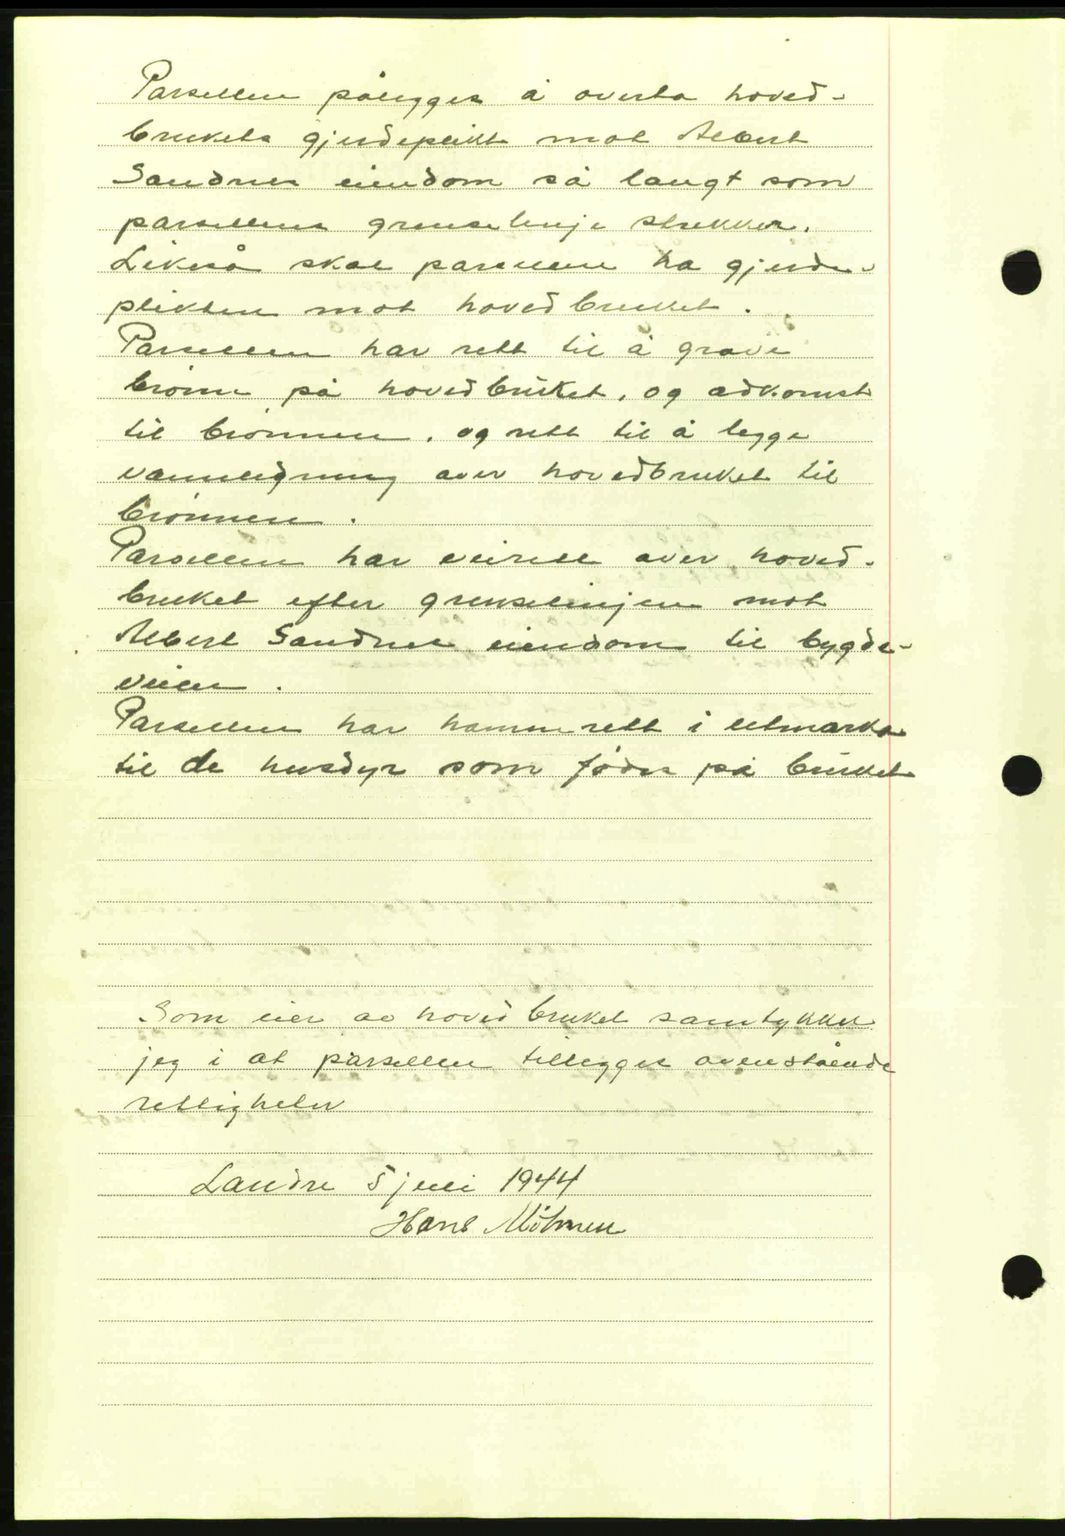 Parsellen pålegges å overta hoved-
brukets gjerdeplikt mot Albert
Sandnes eiendom så langt som
parsellens grenselinje strekker.
Likeså skal parsellen ha gjerde-
plikten mot hovedbruket.
Parsellen har rett til å grave
brønn på hovedbruket, og adkomst
til brønnen, og rett til å legge
vannledning over hovedbruket til
brønnen.
Parsellen har veirett over hoved-
bruket efter grenselinjen mot
Albert Sandnes eiendom til bygde-
veien.
Parsellen har hamnerett i utmarka
til de husdyr som fødes på bruket
Som eier av hovedbruket samtykker
jeg i at parsellen tillegges ovenstående
rettigheter
5 juli 1944
Hans